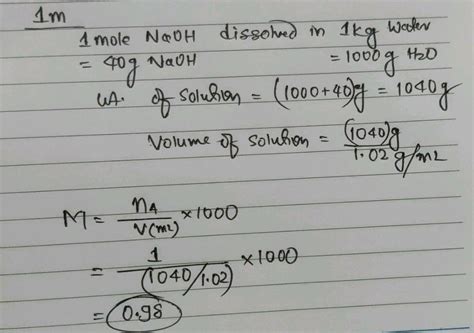 1m
1 mole NaOH dissolved in 1kg water
= 40g NaOH = 1000g H2O
wt. of solution = (1000+40)g = 1040g
Volume of solution = (1040)g / 1.02 g/mL
M = nA / V(mL) × 1000
= 1 / (1040/1.02) × 1000
= 0.98